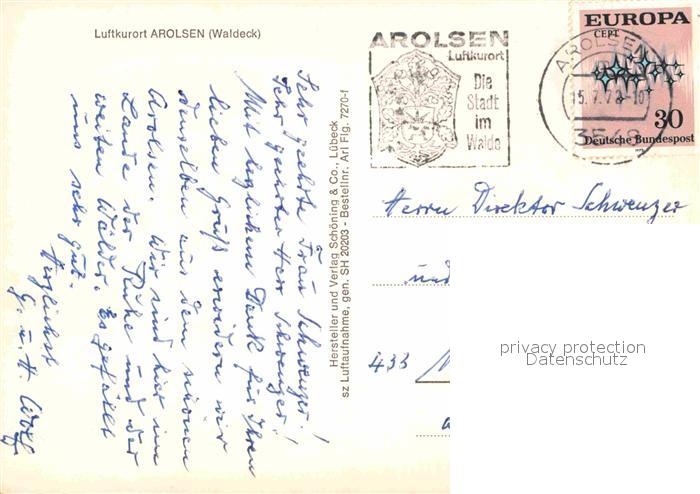 Luftkurort AROLSEN (Waldeck)
Sehr geehrte Frau Schwenger!
Sehr geehrter Herr Schwenger!
Mit herzlichem Dank für Ihren
lieben Gruß erwidern wir
denselben aus dem schönen
Arolsen. Wir sind hier im
Lande der Ruhe und der
weiten Wälder. Es gefällt
uns sehr gut.
Herzlichst
G. u. H. Wolf
Hersteller und Verlag Schöning & Co., Lübeck
sz Luftaufnahme, gen. SH 20203 - Bestellnr. Arl Flg. 7270-f
AROLSEN
Luftkurort
Die
Stadt
im
Walde
AROLSEN
15.7.72-10
3548
EUROPA
CEPT
30
Deutsche Bundespost
Herrn Direktor Schwenger
und
433
privacy protection
Datenschutz